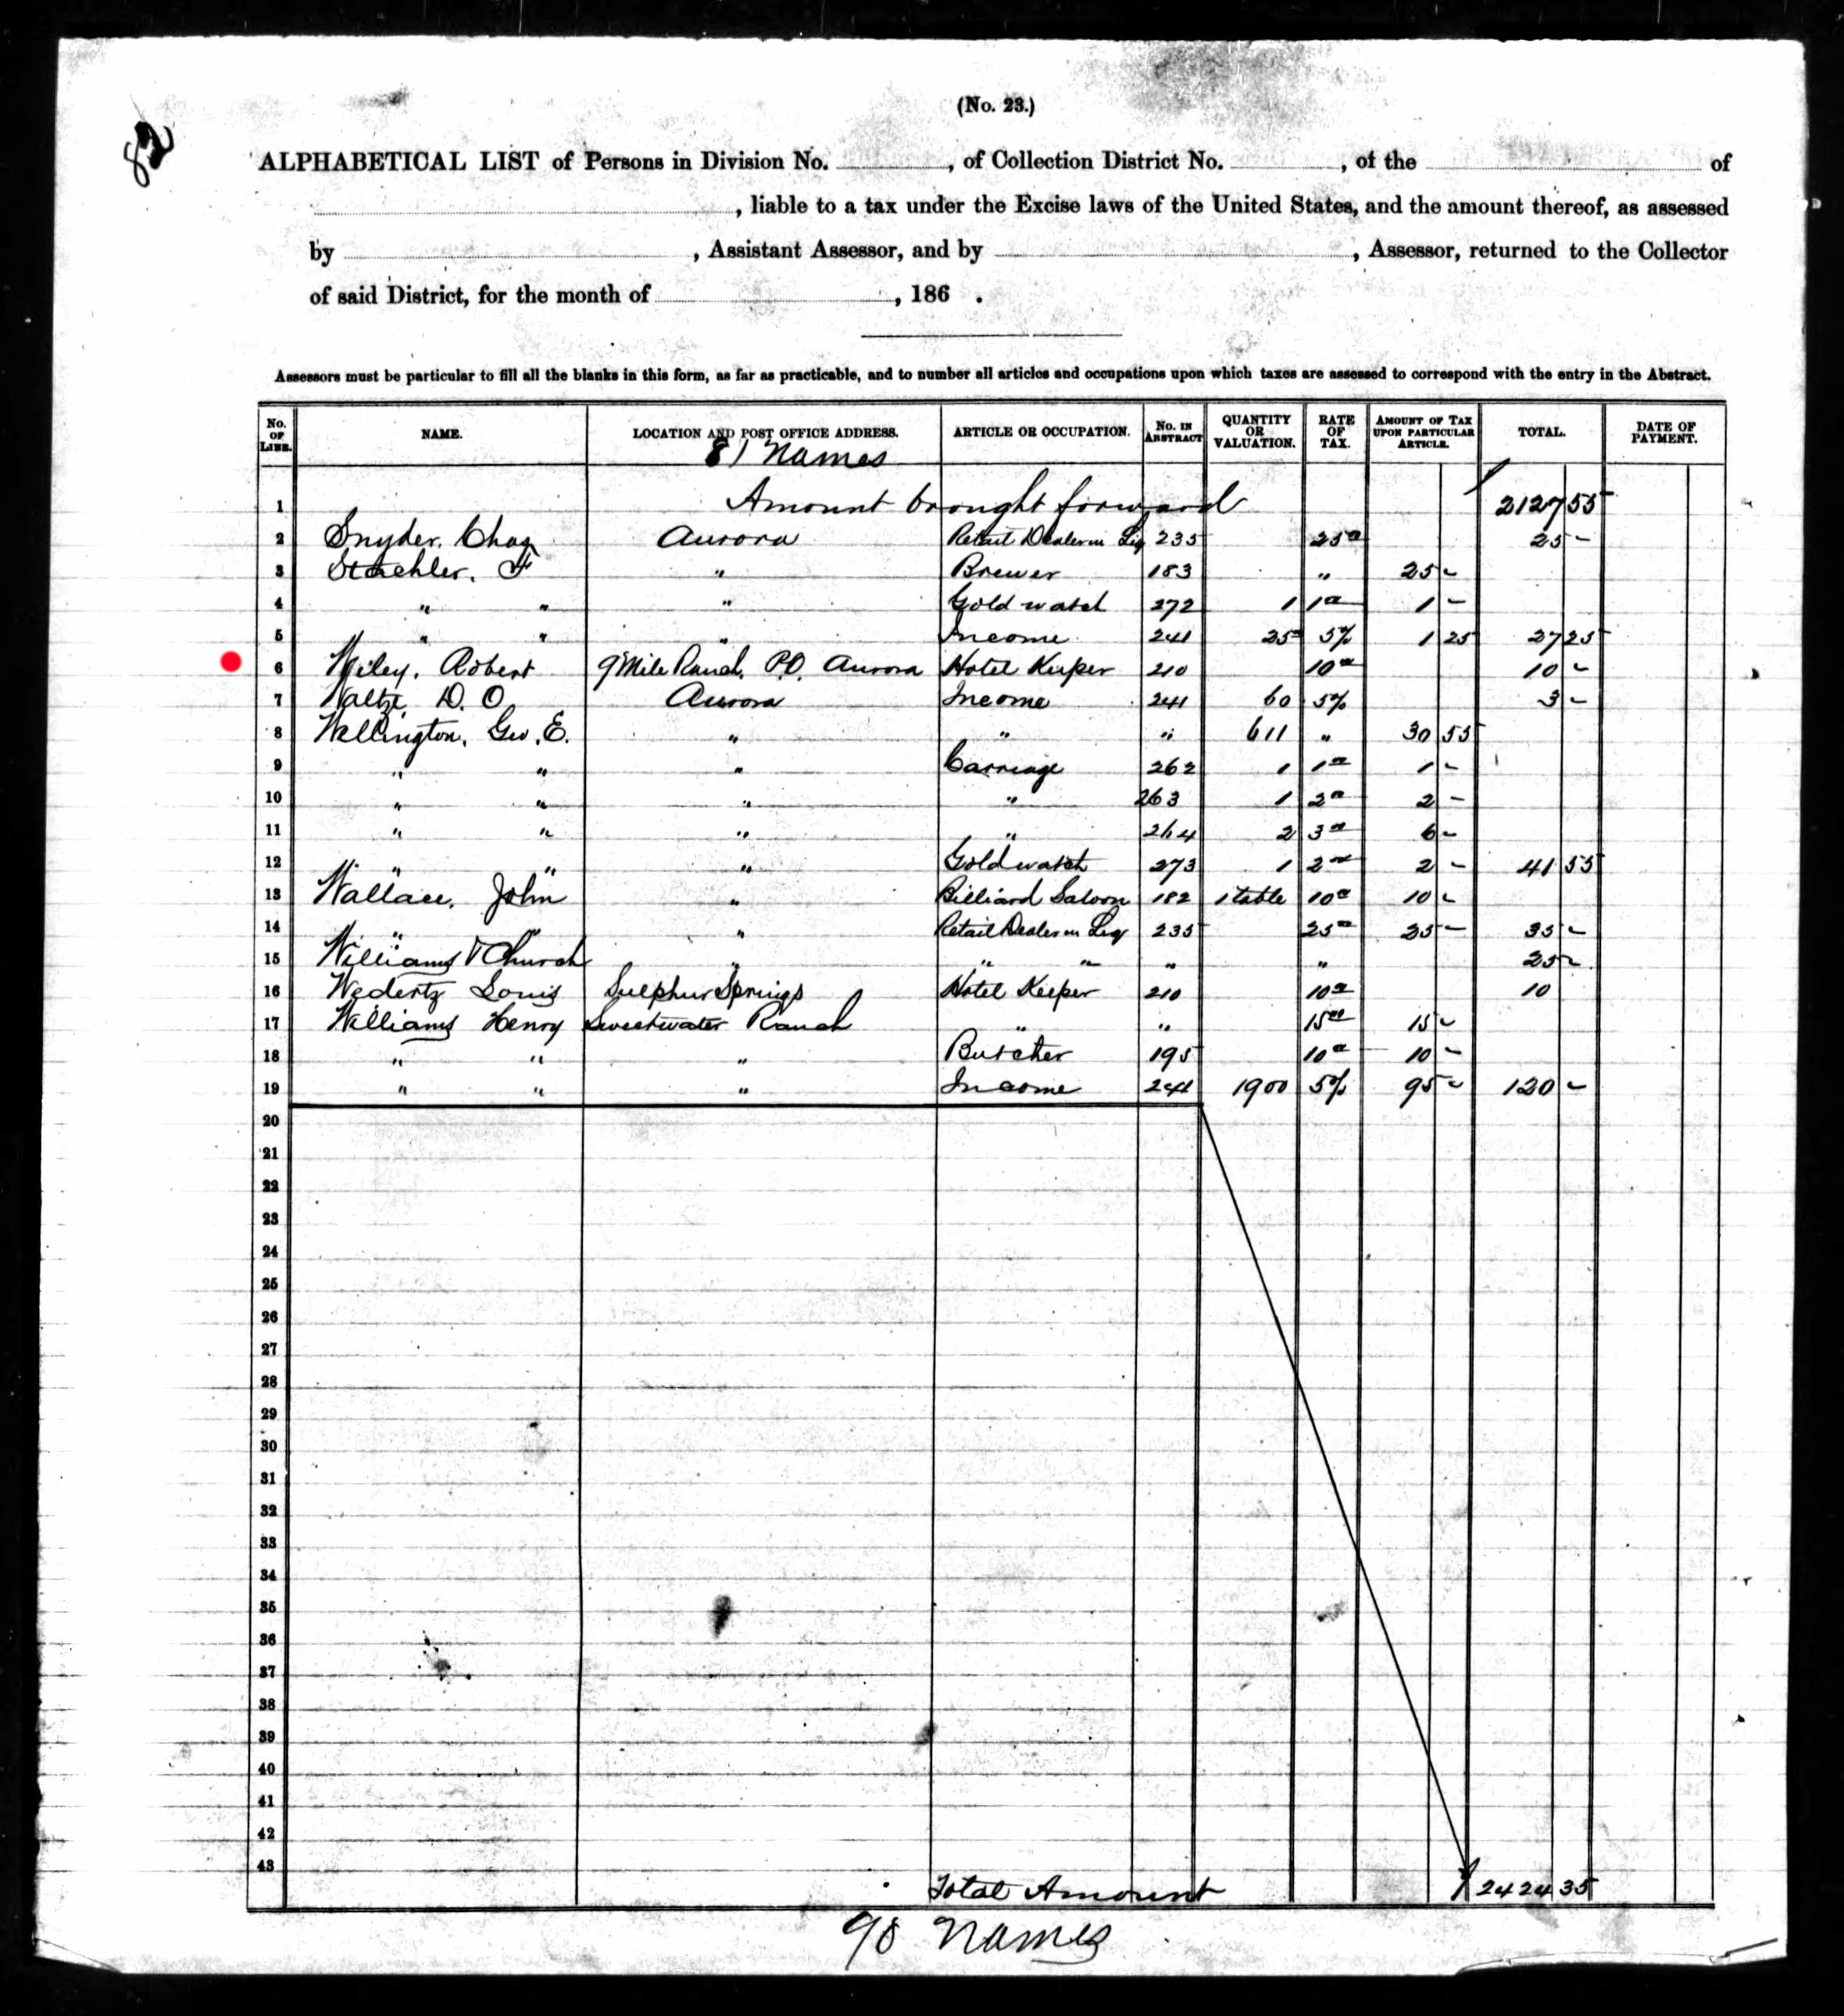 82
(No. 23.)
ALPHABETICAL LIST of Persons in Division No. , of Collection District No. , of the of
, liable to a tax under the Excise laws of the United States, and the amount thereof, as assessed
by , Assistant Assessor, and by , Assessor, returned to the Collector
of said District, for the month of , 186 .
Assessors must be particular to fill all the blanks in this form, as far as practicable, and to number all articles and occupations upon which taxes are assessed to correspond with the entry in the Abstract.
No. OF LINE. NAME. LOCATION AND POST OFFICE ADDRESS. ARTICLE OR OCCUPATION. No. IN ABSTRACT QUANTITY OR VALUATION. RATE OF TAX. AMOUNT OF TAX UPON PARTICULAR ARTICLE. TOTAL. DATE OF PAYMENT.
81 Names
1 Amount brought forward 2127 55
2 Snyder, Chas Aurora Retail Dealer in Liq 235 25 00 25 -
3 Staehler, F " Brewer 183 " 25 -
4 " " " Gold watch 272 1 1 00 1 -
5 " " " Income 241 25 5% 1 25 27 25
6 Wiley, Robert 9 Mile Ranch, P.O. Aurora Hotel Keeper 210 10 00 10 -
7 Waltze, D. O. Aurora Income 241 60 5% 3 -
8 Wellington, Geo. E. " " " 611 " 30 55
9 " " " Carriage 262 1 1 00 1 -
10 " " " " 263 1 2 00 2 -
11 " " " " 264 2 3 00 6 -
12 " " " Gold watch 273 1 2 00 2 - 41 55
13 Wallace, John " Billiard Saloon 182 1 table 10 00 10 -
14 " " " Retail Dealer in Liq 235 25 00 25 - 35 -
15 Williams & Church " " " " " 25 -
16 Wedertz Louis Sulphur Springs Hotel Keeper 210 10 00 10
17 Williams Henry Sweetwater Ranch " " 15 00 15 -
18 " " " Butcher 195 10 00 10 -
19 " " " Income 241 1900 5% 95 - 120 -
20
21
22
23
24
25
26
27
28
29
30
31
32
33
34
35
36
37
38
39
40
41
42
43
Total Amount 2424 35
90 Names